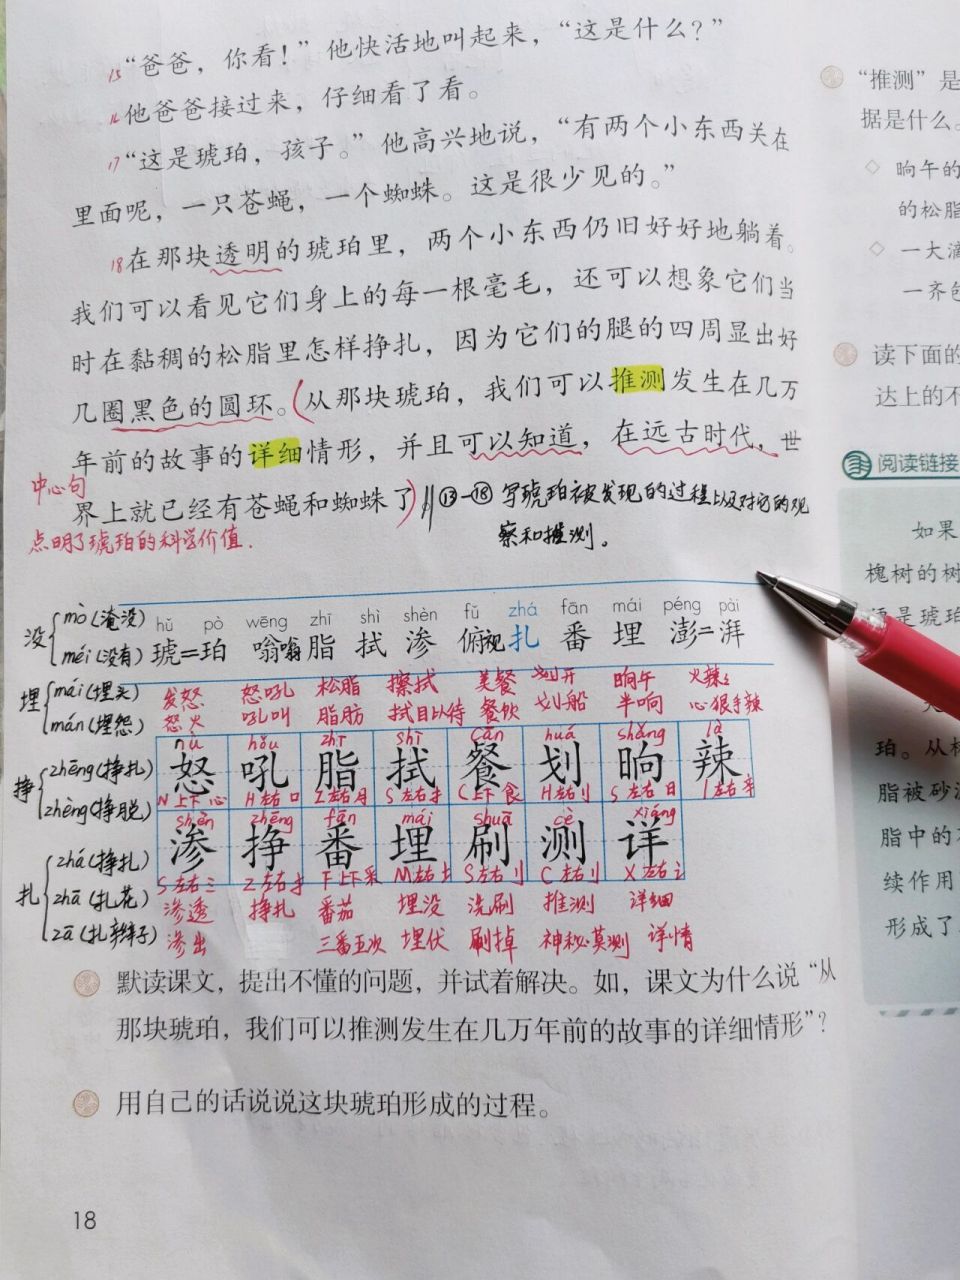 15 “爸爸，你看！”他快活地叫起来，“这是什么？”
16 他爸爸接过来，仔细看了看。
17 “这是琥珀，孩子。”他高兴地说，“有两个小东西关在
里面呢，一只苍蝇，一个蜘蛛。这是很少见的。”
18 在那块透明的琥珀里，两个小东西仍旧好好地躺着。
我们可以看见它们身上的每一根毫毛，还可以想象它们当
时在黏稠的松脂里怎样挣扎，因为它们的腿的四周显出好
几圈黑色的圆环。(从那块琥珀，我们可以推测发生在几万
年前的故事的详细情形，并且可以知道，在远古时代，世
界上就已经有苍蝇和蜘蛛了)
中心句
点明了琥珀的科学价值.
⑬—⑱ 写琥珀被发现的过程以及对它的观
察和推测。
hǔ pò wēng zhī shì shèn fǔ zhá fān mái péng pài
琥=珀 嗡嗡 脂 拭 渗 俯视 扎 番 埋 澎=湃
没 mò(淹没) méi(没有)
埋 mái(埋头) mán(埋怨)
挣 zhēng(挣扎) zhèng(挣脱)
扎 zhá(挣扎) zhā(扎花) zā(扎辫子)
发怒 怒吼 松脂 擦拭 美餐 划开 晌午 火辣辣
怒火 吼叫 脂肪 拭目以待 餐饮 划船 半晌 心狠手辣
nù hǒu zhī shì cān huá shǎng là
怒 吼 脂 拭 餐 划 晌 辣
N上下心 H左右口 Z左右月 S左右扌 C上下食 H左右刂 S左右日 L左右辛
shèn zhēng fān mái shuā cè xiáng
渗 挣 番 埋 刷 测 详
S左右氵 Z左右扌 F上下采 M左右土 S左右刂 C左右刂 X左右讠
渗透 挣扎 番茄 埋没 洗刷 推测 详细
渗出 三番五次 埋伏 刷掉 神秘莫测 详情
默读课文，提出不懂的问题，并试着解决。如，课文为什么说“从
那块琥珀，我们可以推测发生在几万年前的故事的详细情形”？
用自己的话说说这块琥珀形成的过程。
18
“推测”是
据是什么。
◇ 晌午的
的松脂
◇ 一大滴
一齐包
读下面的
达上的不
阅读链接
如果
槐树的树
是琥珀
珀。从
脂被砂
脂中的
续作用
形成了